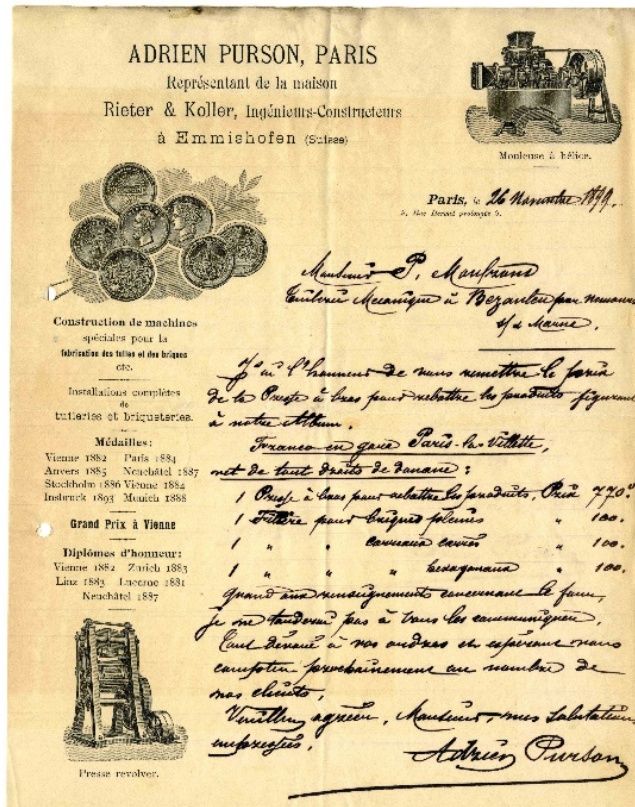 ADRIEN PURSON, PARIS
Représentant de la maison
Rieter & Koller, Ingénieurs-Constructeurs
à Emmishofen (Suisse)
Mouleuse à hélice.
Paris, le 26 Novembre 1899.
5, Rue prolongée 5.
Monsieur P. 
Tuilerie Mécanique à par
s/ Marne.
Construction de machines
spéciales pour la
fabrication des tuiles et des briques
etc.
Installations complètes
de
tuileries et briqueteries.
Médailles:
Vienne 1882 Paris 1884
Anvers 1885 Neuchâtel 1887
Stockholm 1886 Vienne 1884
Insbruck 1893 Munich 1888
Grand Prix à Vienne
Diplômes d'honneur:
Vienne 1882 Zurich 1883
Linz 1883 Lucerne 1881
Neuchâtel 1887
Presse revolver.
J'ai l'honneur de vous remettre le prix
de la Presse à bras pour rebattre les produits figurant
à notre Album.
Franco en gare Paris-la-Villette,
net de tout droits de douane:
1 Presse à bras pour rebattre les produits, Prix 770.
1 Filière pour briques pleines " 100.
1 " " carreaux carrés " 100.
1 " " " hexagonaux " 100.
Quand aux renseignements concernant le four,
je ne tarderai pas à vous les communiquer.
Tout dévoué à vos ordres et espérant vous
compter prochainement au nombre de
nos clients,
Veuillez agréer, Monsieur, mes salutations
empressées,
Adrien Purson